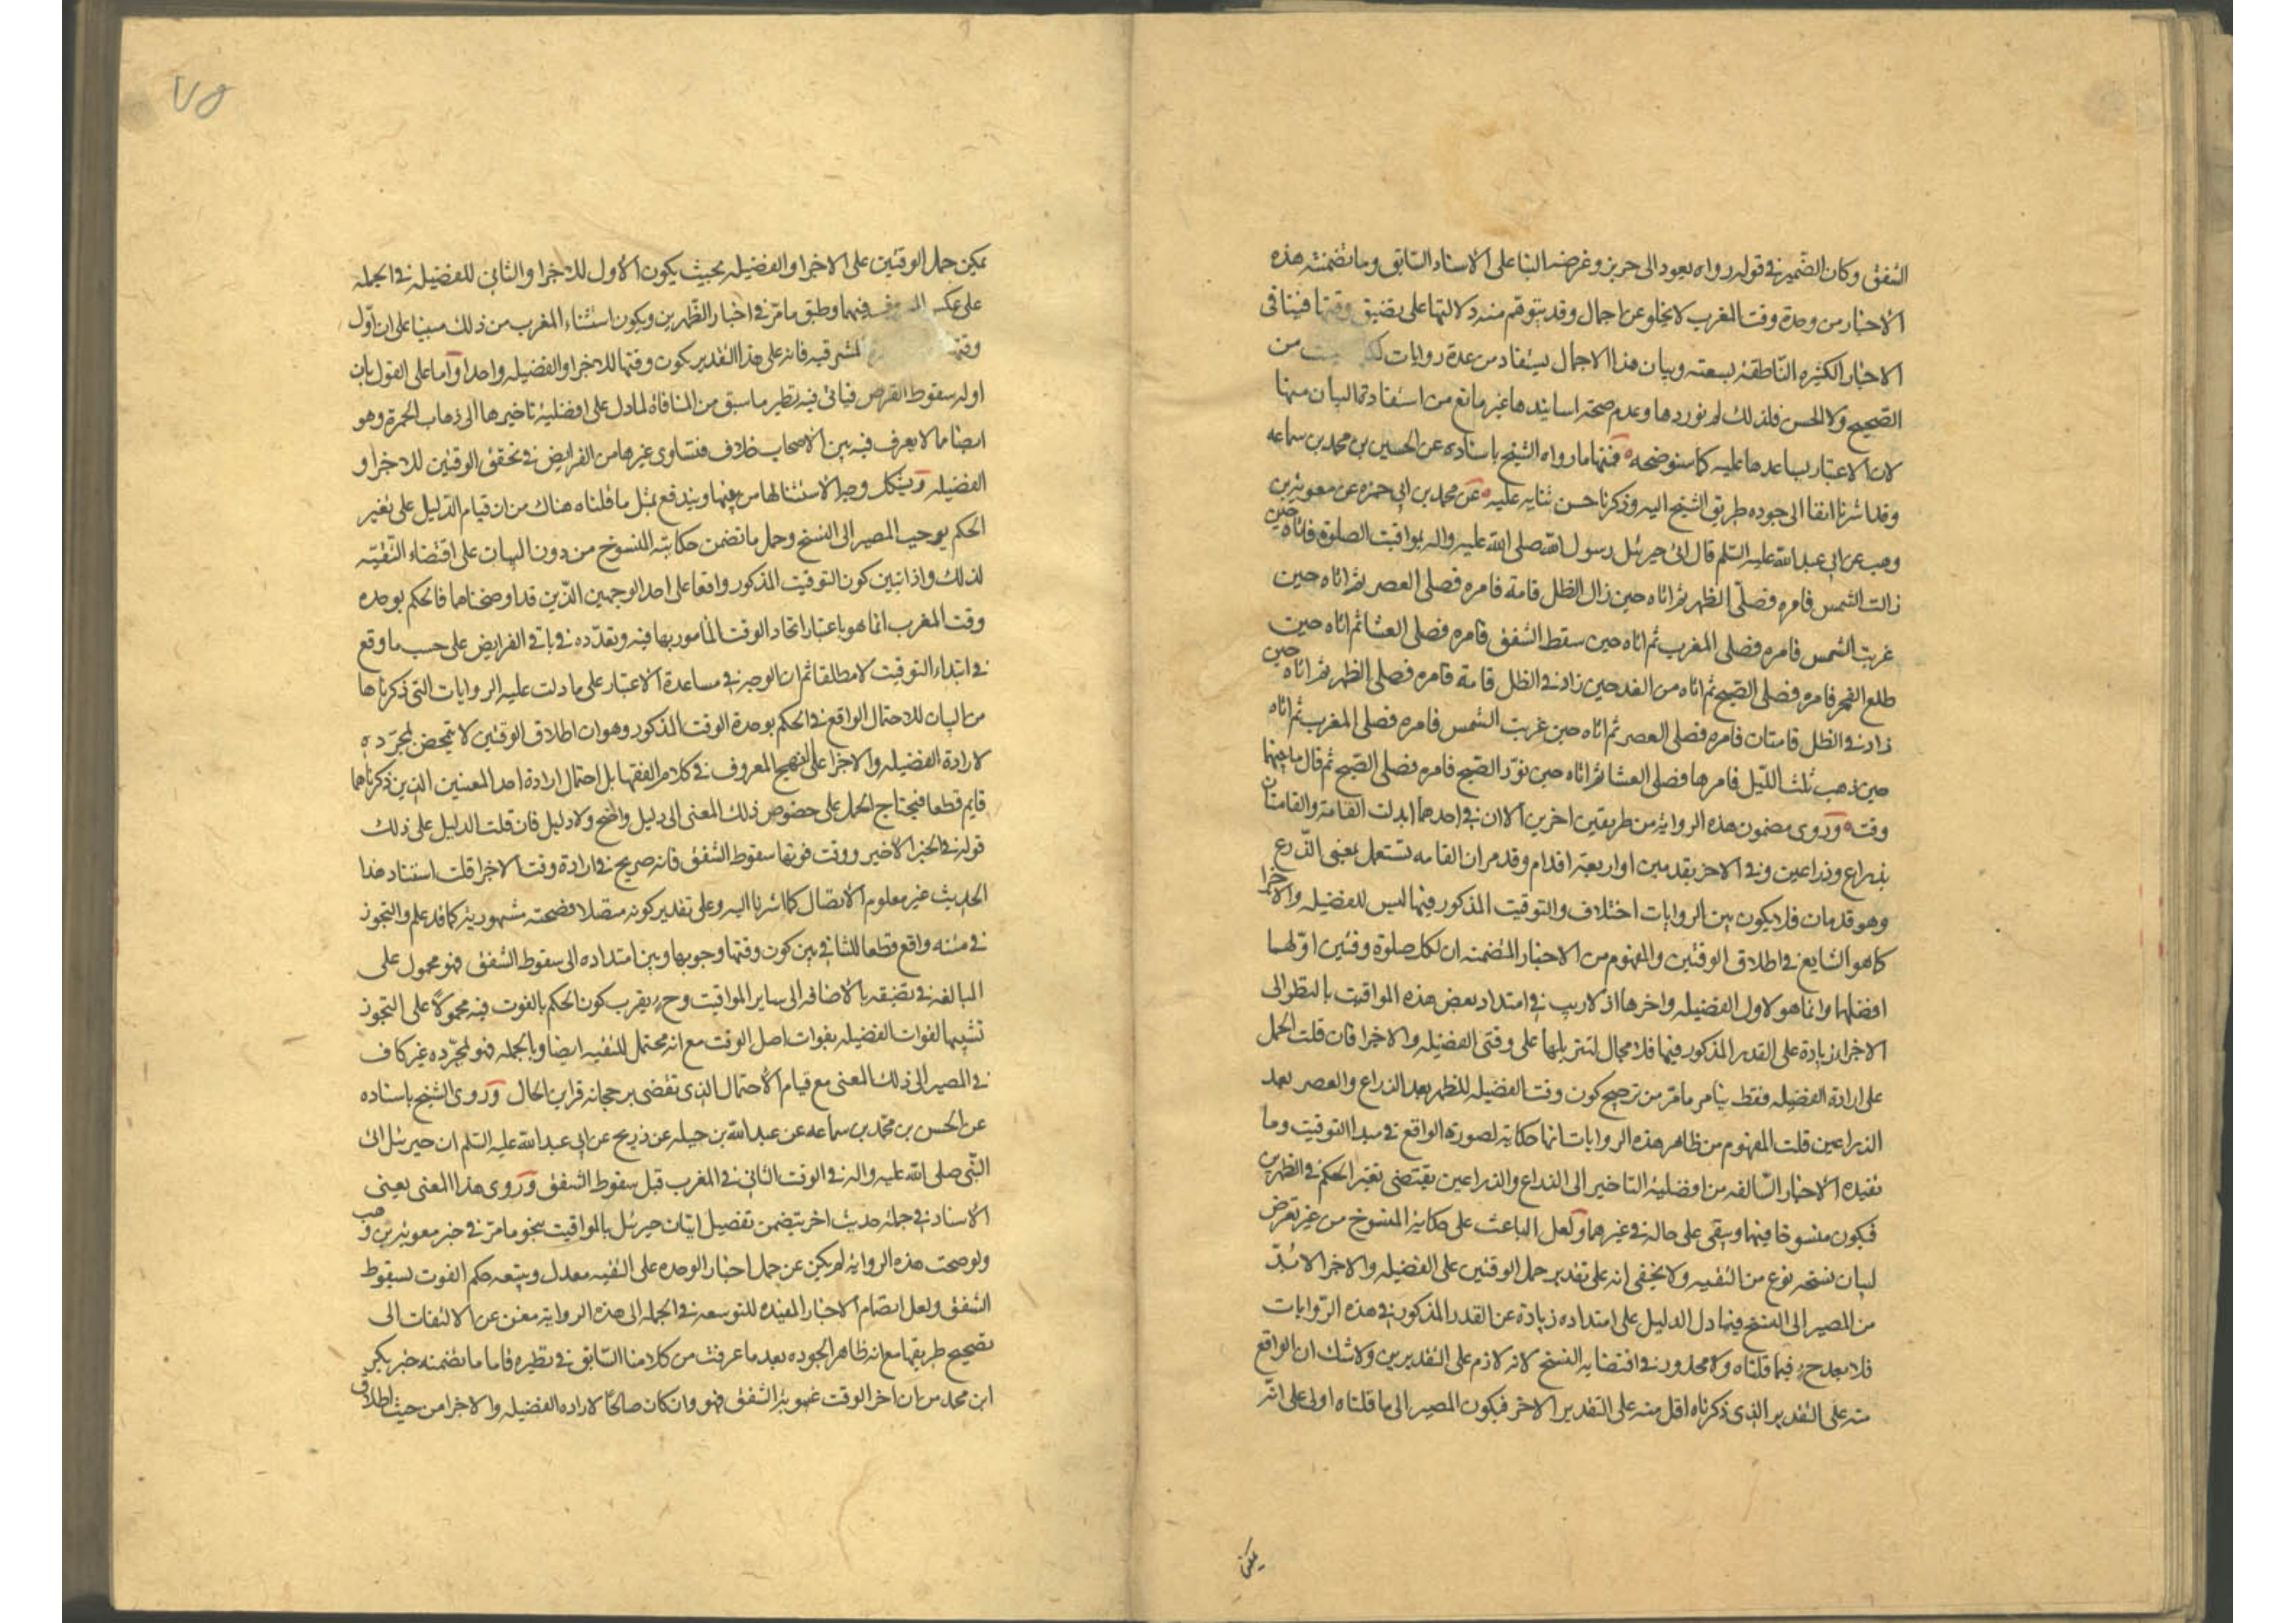 الشفق وكان الضمير في قوله رواه يعود الى حريز وغرضه البنا على الاسناد السابق وما تضمنته هذه
الاخبار من وحدة وقت المغرب لا يخلو عن اجمال وقد يتوهم منه دلالتها على تضيق وقتها فينافى
الاخبار الكثيره الناطقة بسعته وبيان هذا الاجمال يستفاد من عدة روايات ليست من
الصحيح ولا الحسن فلذلك لم نوردها وعدم صحة اسانيدها غير مانع من استفادة البيان منها
لان الاعتبار يساعدها عليه كما سنوضحه فمنها ما رواه الشيخ باسناده عن الحسين بن محمد بن سماعه
وقد اشرنا انفا الى جوده طريق الشيخ اليه وذكرنا حسن ثنايه عليه عن محمد بن ابى حمزه عن معوية بن
وهب عن ابى عبد الله عليه السلم قال اتى جبرئيل رسول الله صلى الله عليه واله بمواقيت الصلوة فاتاه حين
زالت الشمس فامره فصلى الظهر ثم اتاه حين زاد الظل قامة فامره فصلى العصر ثم اتاه حين
غربت الشمس فامره فصلى المغرب ثم اتاه حين سقط الشفق فامره فصلى العشا ثم اتاه حين
طلع الفجر فامره فصلى الصبح ثم اتاه من الغد حين زاد في الظل قامة فامره فصلى الظهر ثم اتاه حين
زاد في الظل قامتان فامره فصلى العصر ثم اتاه حين غربت الشمس فامره فصلى المغرب ثم اتاه
حين ذهب ثلث الليل فامرها فصلى العشا ثم اتاه حين نوّر الصبح فامره فصلى الصبح ثم قال ما بينهما
وقت وروى مضمون هذه الرواية من طريقين اخرين الا ان في احدهما ابدلت القامة والقامتان
بذراع وذراعين وفى الاخر بقدمين او اربعة اقدام وقد مر ان القامه تستعمل بمعنى الذراع
وهو قدمان فلا يكون بين الروايات اختلاف والتوقيت المذكور فيها ليس للفضيله والاجزا
كما هو الشايع في اطلاق الوقتين والمفهوم من الاخبار المتضمنه ان لكل صلوة وقتين اولهما
افضلهما وانما هو لاول الفضيله واخرها اذ لا ريب في امتداد بعض هذه المواقيت بالنظر الى
الاجزا زيادة على القدر المذكور فيها فلا مجال لتنزيلها على وقتى الفضيله والاجزا فان قلت الحمل
على ارادة الفضيله فقط ينافر ما مر من ترجيح كون وقت الفضيله للظهر بعد الذراع والعصر بعد
الذراعين قلت المفهوم من ظاهر هذه الروايات انها حكاية لصورة الواقع في مبدا التوقيت وما
تفيده الاخبار السالفه من افضلية التاخير الى الذراع والذراعين يقتضى تغير الحكم في الظهرين
فيكون منسوخا فيهما ويبقى على حاله في غيرهما ولعل الباعث على حكاية المنسوخ من غير تعرض
لبيان نسخه نوع من التقيه ولا يخفى انه على تقدير حمل الوقتين على الفضيله والاجزا لا بد
من المصير الى النسخ فيما دل الدليل على امتداده زيادة عن القدر المذكور في هذه الروايات
فلا بعد ح فيما قلناه ولا محذور في اقتضايه النسخ لانه لازم على التقديرين ولا شك ان الواقع
منه على التقدير الذى ذكرناه اقل منه على التقدير الاخر فيكون المصير الى ما قلناه اولى على انه
يمكن
يمكن حمل الوقتين على الاجزا والفضيله بحيث يكون الاول للاجزا والثانى للفضيله في الجمله
على عكس فيهما وطبق ما مر في اخبار الظهرين ويكون استثناء المغرب من ذلك مبنيا على ان اول
وقتها المشرقيه فانه على هذا التقدير يكون وقتها للاجزا والفضيله واحدا واما على القول بان
اوله سقوط القرص فياتى فيه نظير ما سبق من المنافاة لما دل على افضلية تاخيرها الى ذهاب الحمرة وهو
ايضا ما لا يعرف فيه بين الاصحاب خلاف فتساوى غيرها من الفرايض في تحقق الوقتين للاجزا و
الفضيله ويشكل وجه الاستثنا لها من بينها ويندفع بمثل ما قلناه هناك من ان قيام الدليل على تغير
الحكم يوجب المصير الى النسخ وحمل ما تضمن حكاية المنسوخ من دون البيان على اقتضاء التقيه
لذلك واذا تبين كون التوقيت المذكور واقعا على احد الوجهين الذين قد اوضحناهما فالحكم بوحده
وقت المغرب انما هو باعتبار اتحاد الوقت المامور بها فيه وتعدده في باقى الفرايض على حسب ما وقع
في ابتداء التوقيت لا مطلقا ثم ان الوجه في مساعدة الاعتبار على ما دلت عليه الروايات التى ذكرناها
من البيان للاحتمال الواقع في الحكم بوحدة الوقت المذكور وهو ان اطلاق الوقتين لا يتمحض بمجرده
لارادة الفضيله والاجزا على النهج المعروف في كلام الفقها بل احتمال ارادة احد المعنيين الذين ذكرناهما
قايم قطعا فيحتاج الحمل على خصوص ذلك المعنى الى دليل واضح ولا دليل فان قلت الدليل على ذلك
قوله في الخبر الاخير ووقت فوتها سقوط الشفق فانه صريح في ارادة وقت الاجزا قلت استناد هذا
الحديث غير معلوم الاتصال كما اشرنا اليه وعلى تقدير كونه متصلا فصحته مشهورية كما قد علم والتجوز
في متنه واقع قطعا للتنافى بين كون وقتها وجوبها وبين امتداده الى سقوط الشفق فهو محمول على
المبالغه في تضيقه بالاضافه الى ساير المواقيت وح يقرب كون الحكم بالفوت فيه محمولا على التجوز
تشبيها لفوات الفضيله بفوات اصل الوقت مع انه محتمل للتقيه ايضا وبالجمله فهو بمجرده غير كاف
في المصير الى ذلك المعنى مع قيام الاحتمال الذى تقضى برجحانه قراين الحال وروى الشيخ باسناده
عن الحسن بن محمد بن سماعه عن عبد الله بن جبله عن ذريح عن ابى عبد الله عليه السلم ان جبرئيل اتى
النبى صلى الله عليه واله في الوقت الثانى في المغرب قبل سقوط الشفق وروى هذا المعنى بعينى
الاسناد في جملة حديث اخر يتضمن تفصيل اتيان جبرئيل بالمواقيت بنحو ما مر في خبر معوية بن وهب
ولو صحت هذه الرواية لم يكن عن حمل اخبار الوحده على التقيه معدل ويتبعه حكم الفوت لسقوط
الشفق ولعل انضمام الاخبار المفيده للتوسعه في الجمله الى هذه الرواية مغن عن الالتفات الى
تصحيح طريقها مع انه ظاهر الجوده بعد ما عرفت من كلامنا السابق في نظيره فاما ما تضمنه خبر بكر
ابن محمد من ان اخر الوقت غيبوبة الشفق فهو وان كان صالحا لاراده الفضيله والاجزا من حيث اطلاق